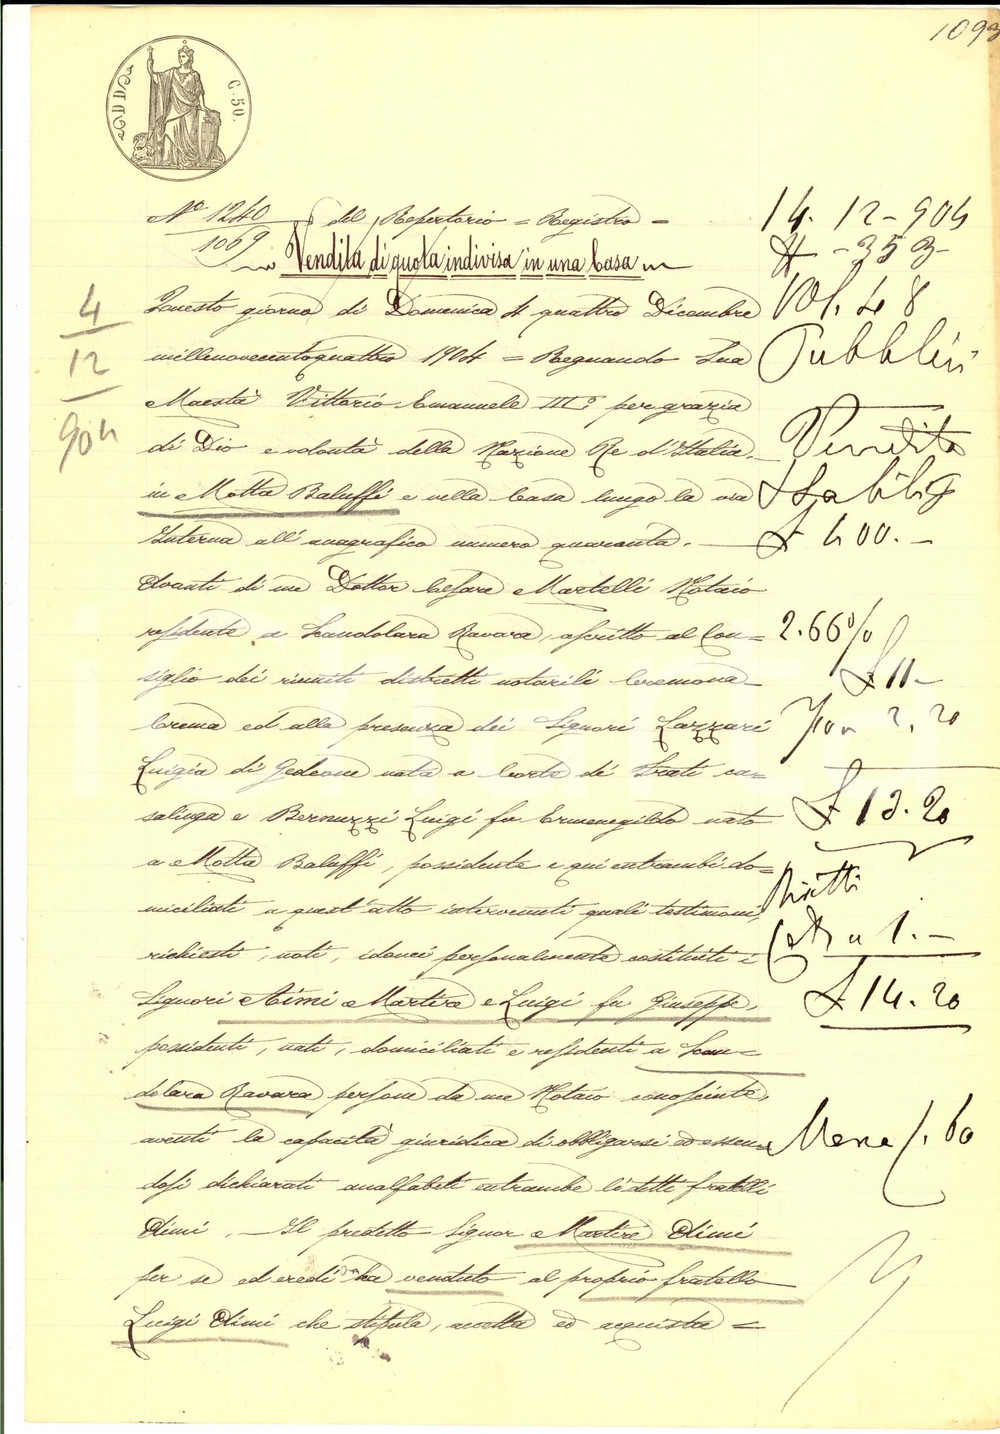 1093
C. 50.
N.° 1240 / 1069 del Repertorio = Registro =
Vendita di quota indivisa in una Casa
Questo giorno di Domenica 4 quattro Dicembre
millenovecentoquattro 1904 = Regnando Sua
Maestà Vittorio Emanuele III° per grazia
di Dio e volontà della Nazione Re d'Italia.
in Motta Baluffi e nella Casa lungo la via
Interna all'anagrafico numero quaranta.
Avanti di me Dottor Cesare Martelli Notaio
residente a Scandolara Ravara, ascritto al Con=
siglio dei riuniti distretti notarili Cremona
Crema ed alla presenza dei Signori Lazzari
Luigia di Gedeone nata a Corte de' Frati ca=
salinga e Bernuzzi Luigi fu Ermenegildo nato
a Motta Baluffi, possidente e qui entrambi do=
miciliati a quest'atto intervenuti quali testimoni
richiesti, noti, idonei personalmente costituiti i
Signori Aimi Martire e Luigi fu Giuseppe,
possidenti, nati, domiciliati e residenti a Scan=
dolara Ravara persone da me Notaio conosciute,
aventi la capacità giuridica di obbligarsi ed essen=
dosi dichiarati analfabeti entrambe li detti fratelli
Aimi. Il predetto Signor Martire Aimi
per sè ed eredi ha venduto al proprio fratello
Luigi Aimi che stipula, accetta ed acquista =
4
12
904
14. 12 - 904
353
Vol. 48
Pubblici
Vendita
Stabili
£ 400. -
2.66%
£ 11 -
2, 20
£ 13. 20
Diritti
1. -
£ 14. 20
60